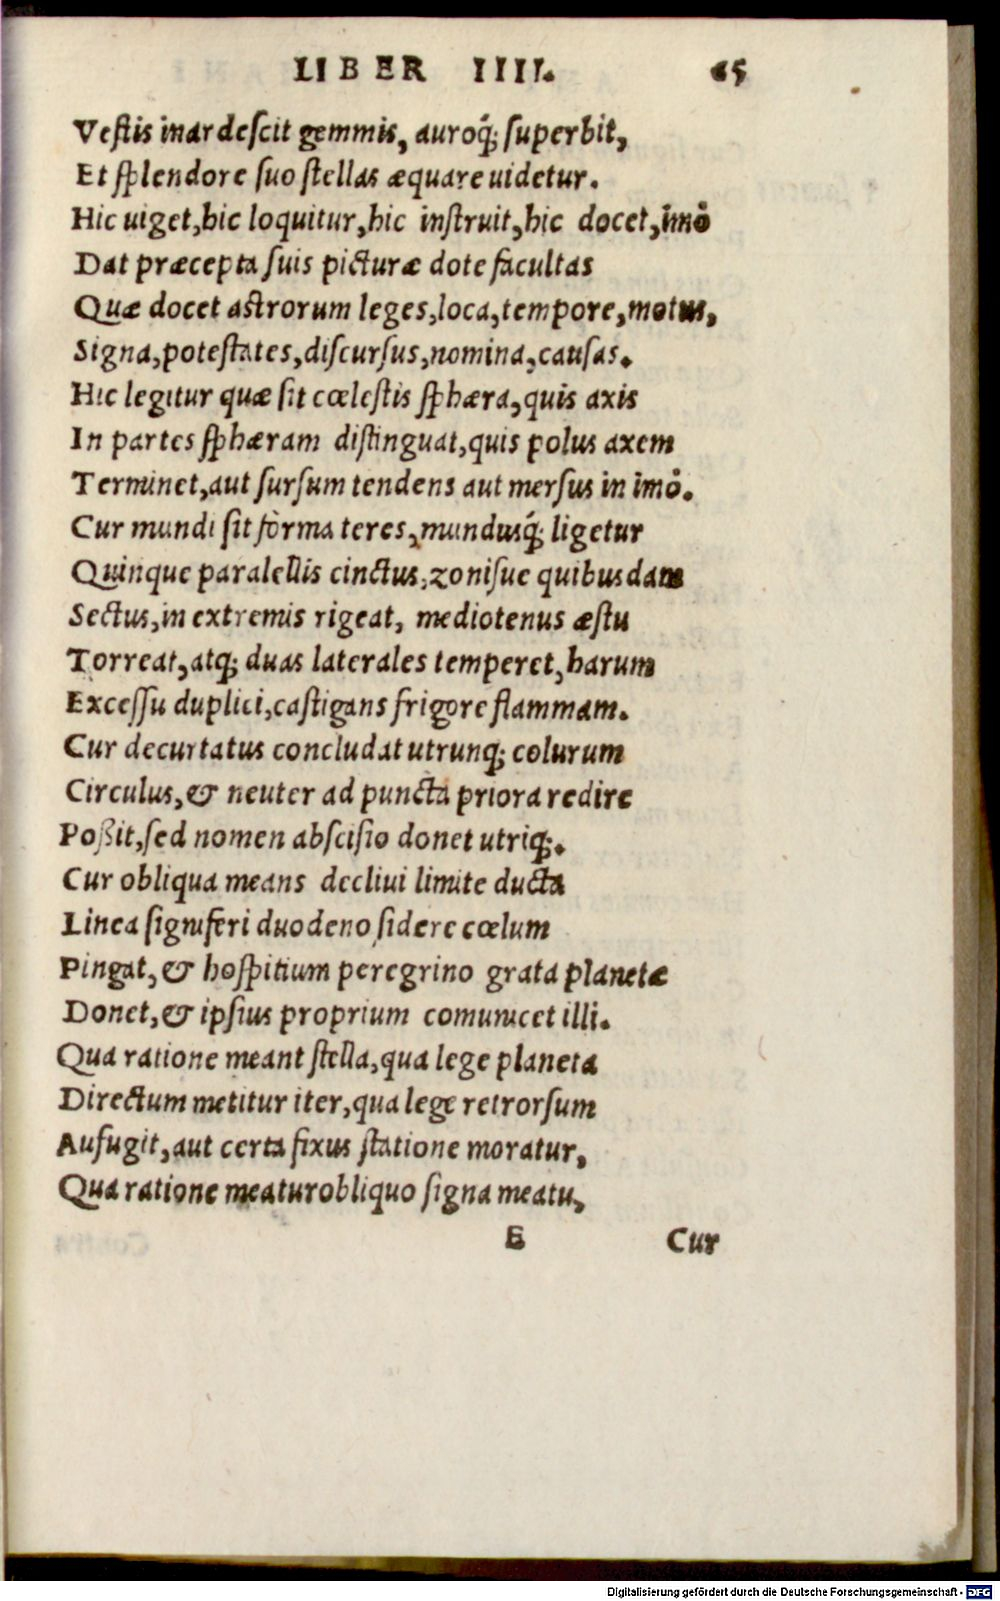 LIBER IIII. 65
Vestis inardescit gemmis, auroq́; superbit,
Et splendore suo stellas æquare uidetur.
Hic uiget,hic loquitur,hic instruit,hic docet,imò
Dat præcepta suis picturæ dote facultas
Quæ docet astrorum leges,loca,tempore,motus,
Signa,potestates,discursus,nomina,causas.
Hic legitur quæ sit cœlestis sphæra,quis axis
In partes sphæram distinguat,quis polus axem
Terminet,aut sursum tendens aut mersus in imò.
Cur mundi sit forma teres,mundusq́; ligetur
Quinque paralellis cinctus,zonisue quibusdam
Sectus,in extremis rigeat, mediotenus æstu
Torreat,atq; duas laterales temperet,harum
Excessu duplici,castigans frigore flammam.
Cur decurtatus concludat utrunq; colurum
Circulus,& neuter ad puncta priora redire
Poßit,sed nomen abscisio donet utriq;.
Cur obliqua means decliui limite ducta
Linea signiferi duodeno sidere cœlum
Pingat,& hospitium peregrino grata planetæ
Donet,& ipsius proprium comunicet illi.
Qua ratione meant stella,qua lege planeta
Directum metitur iter,qua lege retrorsum
Aufugit,aut certa fixus statione moratur,
Qua ratione meatur obliquo signa meatu,
E Cur
Digitalisierung gefördert durch die Deutsche Forschungsgemeinschaft - DFG